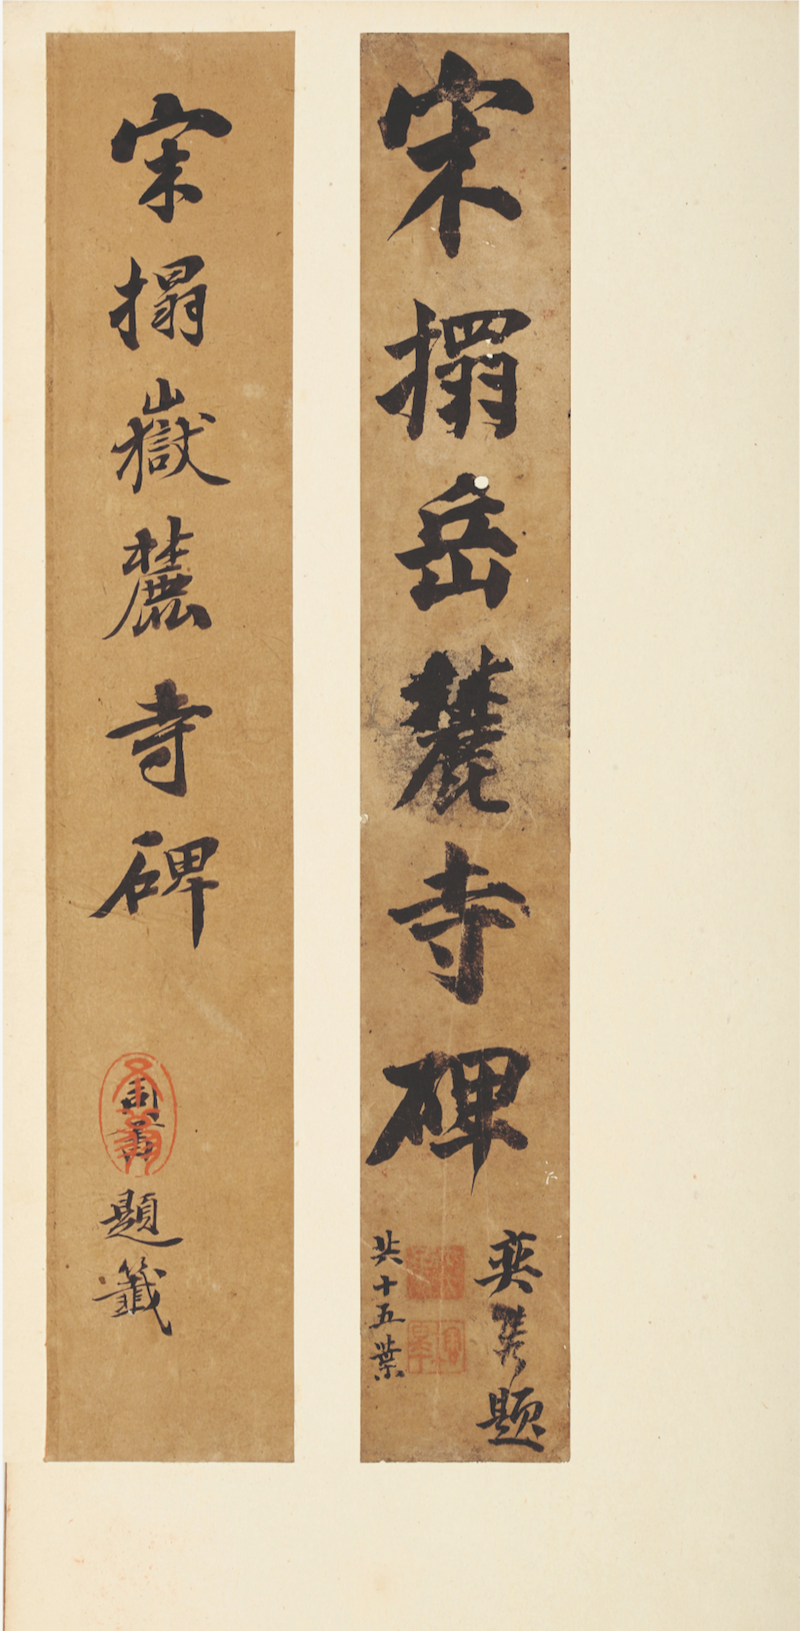 宋搨岳麓寺碑
奕
題
共十五葉
宋搨嶽麓寺碑
題籤